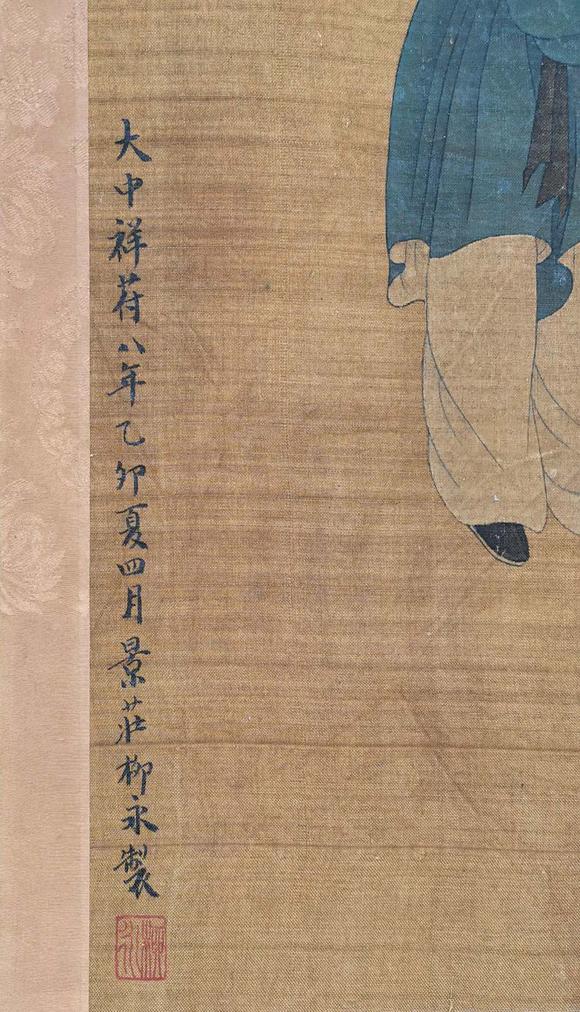 大中祥荇八年乙卯夏四月景莊柳永製